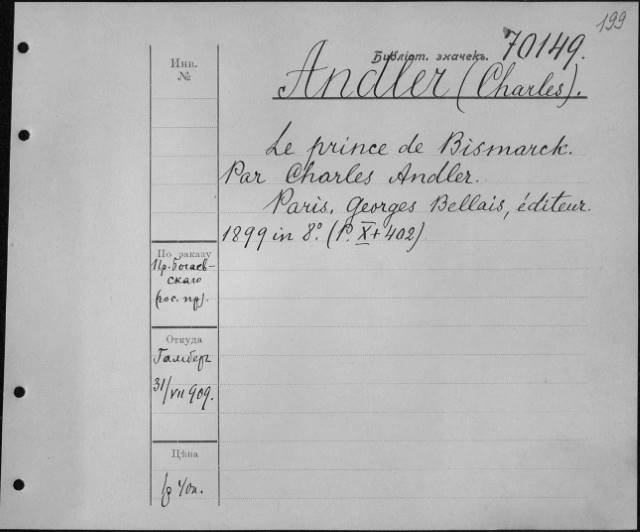 199
Библіот. значекъ. 70149.
Инв.
№
Andler (Charles).
Le prince de Bismarck.
Par Charles Andler.
Paris, Georges Bellais, éditeur.
1899 in 8.° (P. X + 402)
По заказу
Пр. Богаев-
скаго
(рос. пр).
Откуда
Гамберг
31/VII 909.
Цѣна
40к.